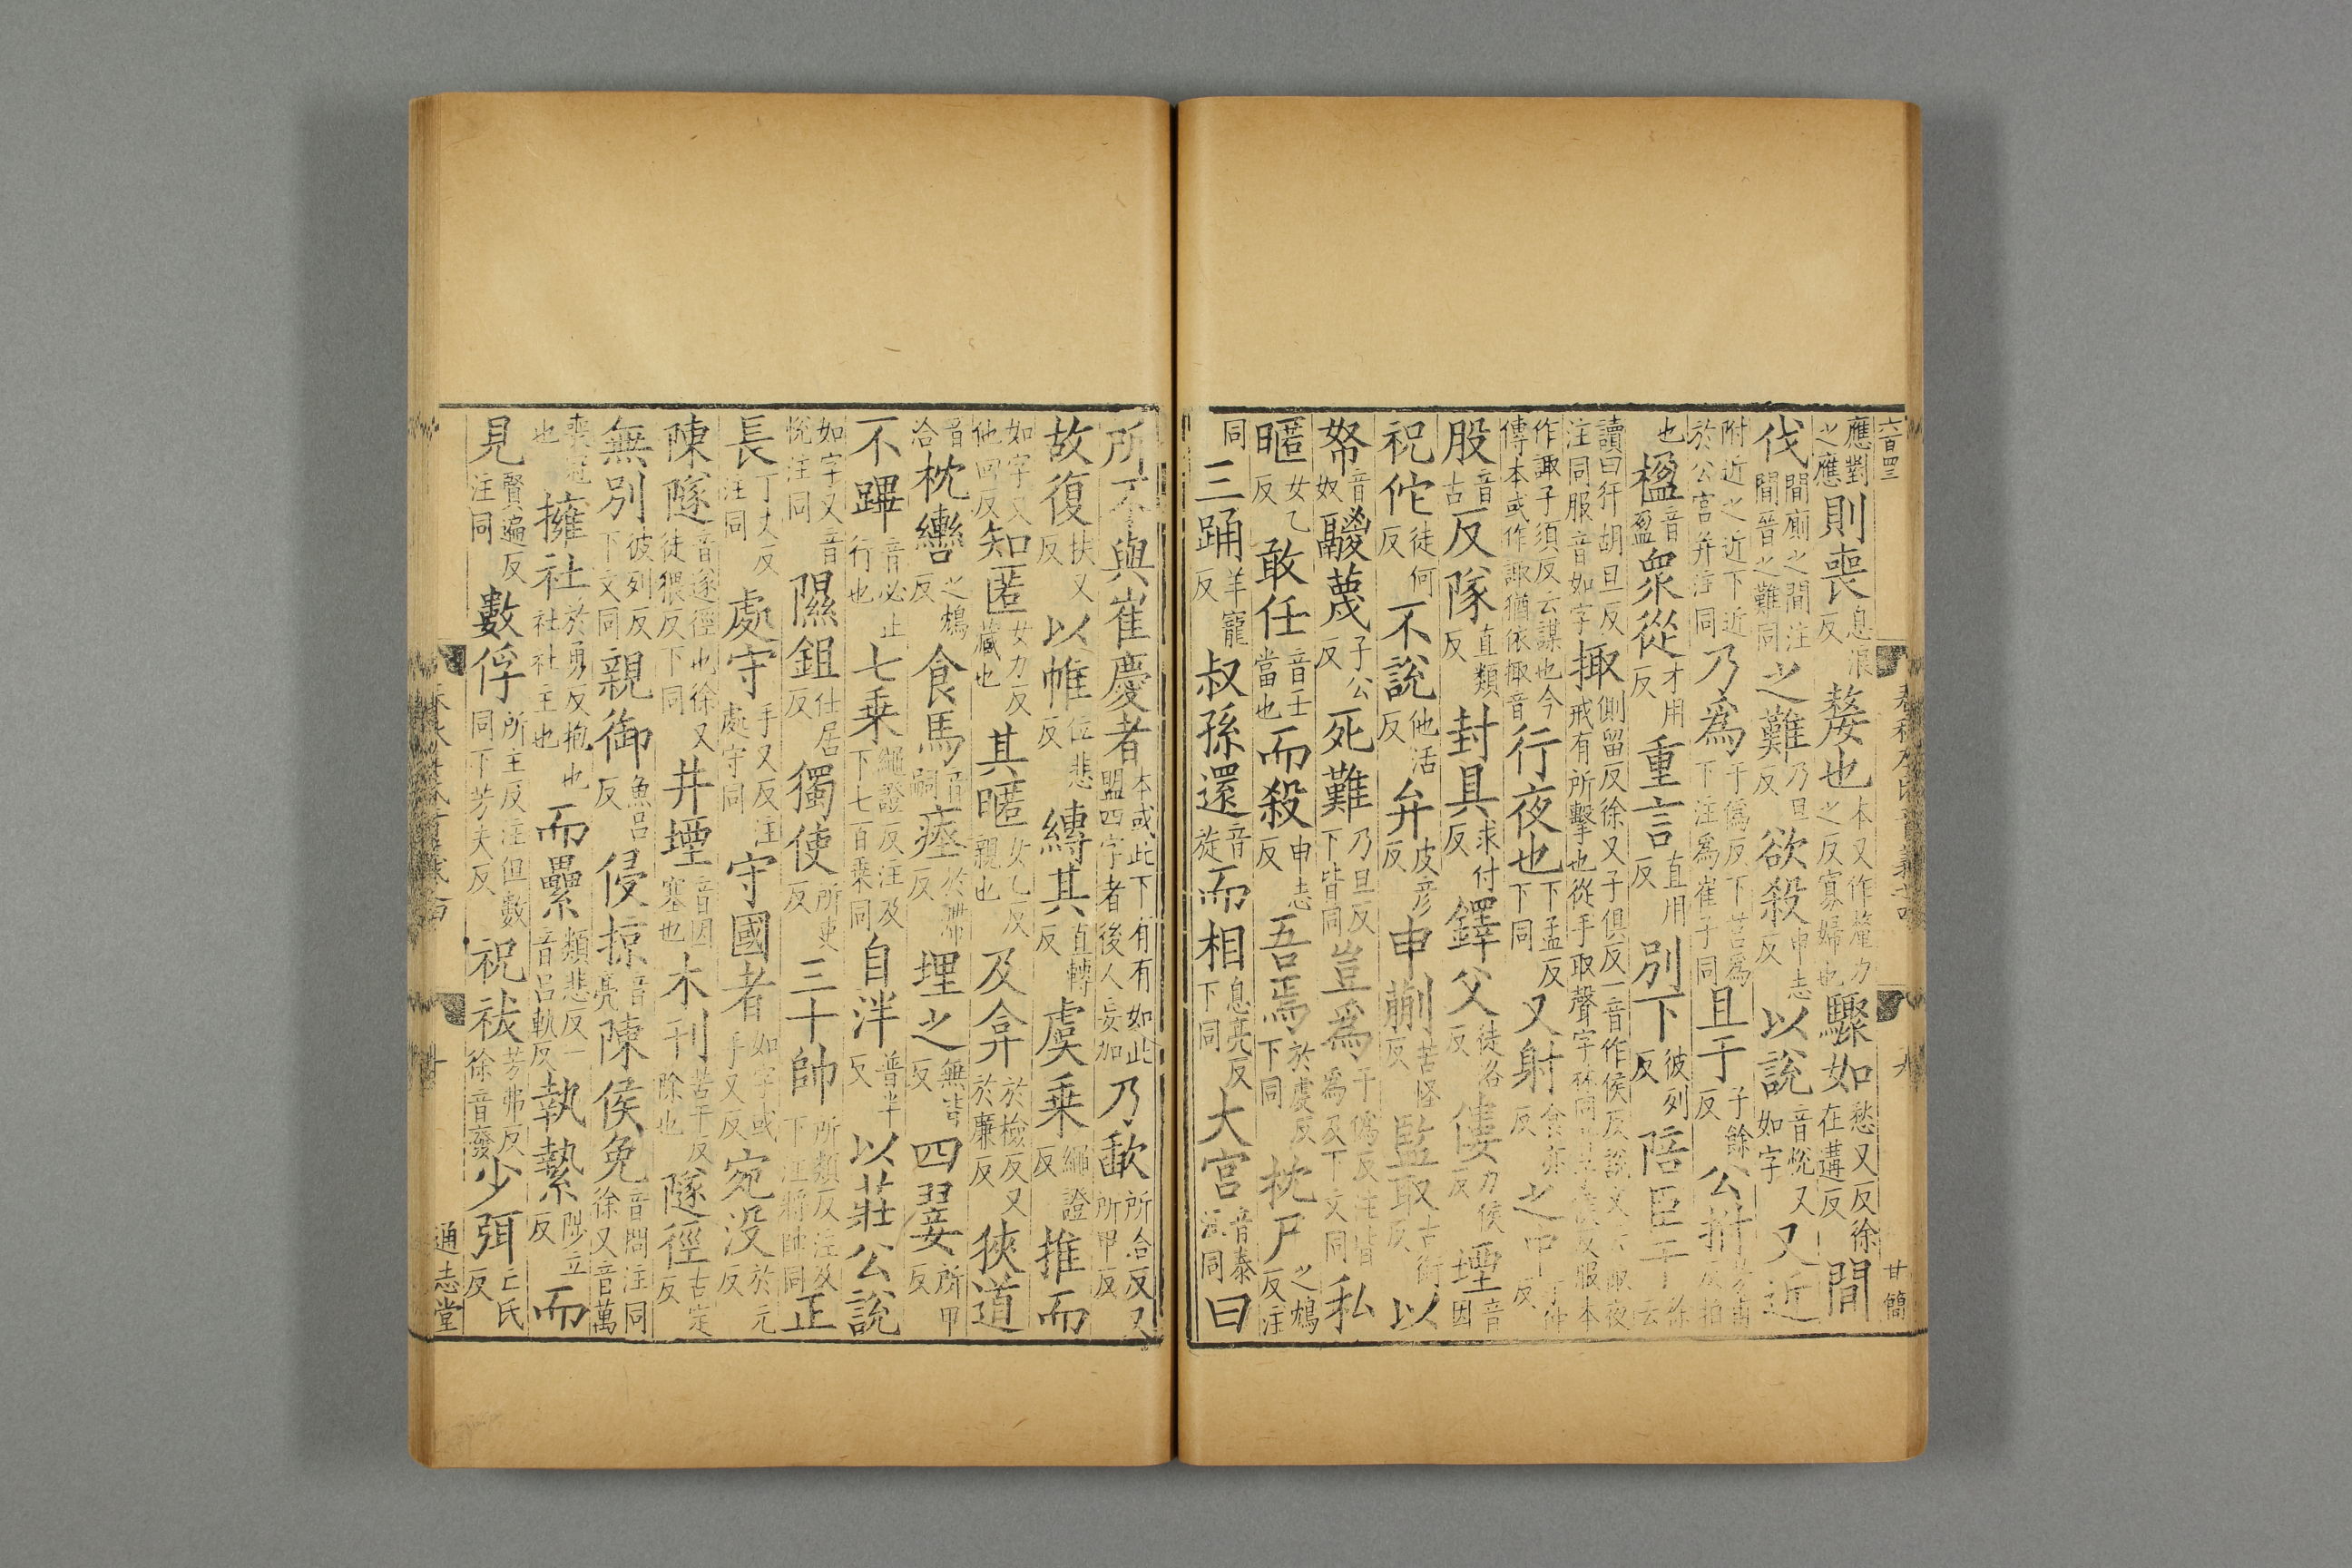 六百四三
應對之應則喪息浪反嫠也本又作釐力之反寡婦也驟如愁又反徐在遘反間
伐間廁之間注間晉之難同之難乃旦反欲殺申志反以說音悅又如字又近
附近之近下近於公宮并注同乃為于偽反下苦為下注為崔子同且于子餘反公拊
也楹音盈眾從才用反重言直用反別下彼列反陪臣干
讀曰犴胡旦反注同服音如字掫側留反徐又子俱反一音作侯反說文云掫夜戒有所擊也從手取聲字林同服本
作諏子須反云謀也今傳本或作諏猶依掫音行夜也下孟反下同又射食亦反之中丁仲反
股音古反隊直類反封具求付反鐸父徒洛反僂力侯反堙音因
祝佗徒何反不說他活反弁皮彥反申蒯苦怪反監取古銜反以
帑音奴鬷蔑子公反死難乃旦反下皆同豈為于偽反注皆為及下文同私
暱女乙反敢任音壬當也而殺申志反吾焉於虔反下同枕尸之鴆反注
同三踊羊寵反叔孫還音徒而相息亮反下同大宮音泰注同曰
春秋左氏音義之四
九
甘簡
所不與崔慶者本或此下有有如此盟四字者後人妄加乃歃所合反又所甲反
故復扶又反以帷位悲反縳其直轉反虞乘繩證反推而
如字又他回反知匿女力反藏也其暱女乙反親也及弇於檢反又於廉反狹道
音洽枕轡之鴆反食馬音嗣瘞於滯反埋之無皆反四翣所甲反
不蹕音必止行也七乘繩證反注及下七百乘同自泮普半反以莊公說
如字又音悅注同隰鉏仕居反獨使所吏反三十帥所類反注及下注將帥同正
長丁丈反注同處守手又反注處守同守國者如字或手又反宛沒於元反
陳隧音遂徑也徐又徒猥反下同井堙音因塞也木刊苦干反除也隧徑古定反
無別彼列反下文同親御魚呂反侵掠音亮陳侯免音問注同徐又音萬
喪冠也擁社於勇反抱也社社主也而纍類悲反一音呂軌反執縶陟立反而
見賢遍反注同數俘所主反注但數同下芳夫反祝祓芳弗反徐音廢少弭亡氏反
十
通志堂